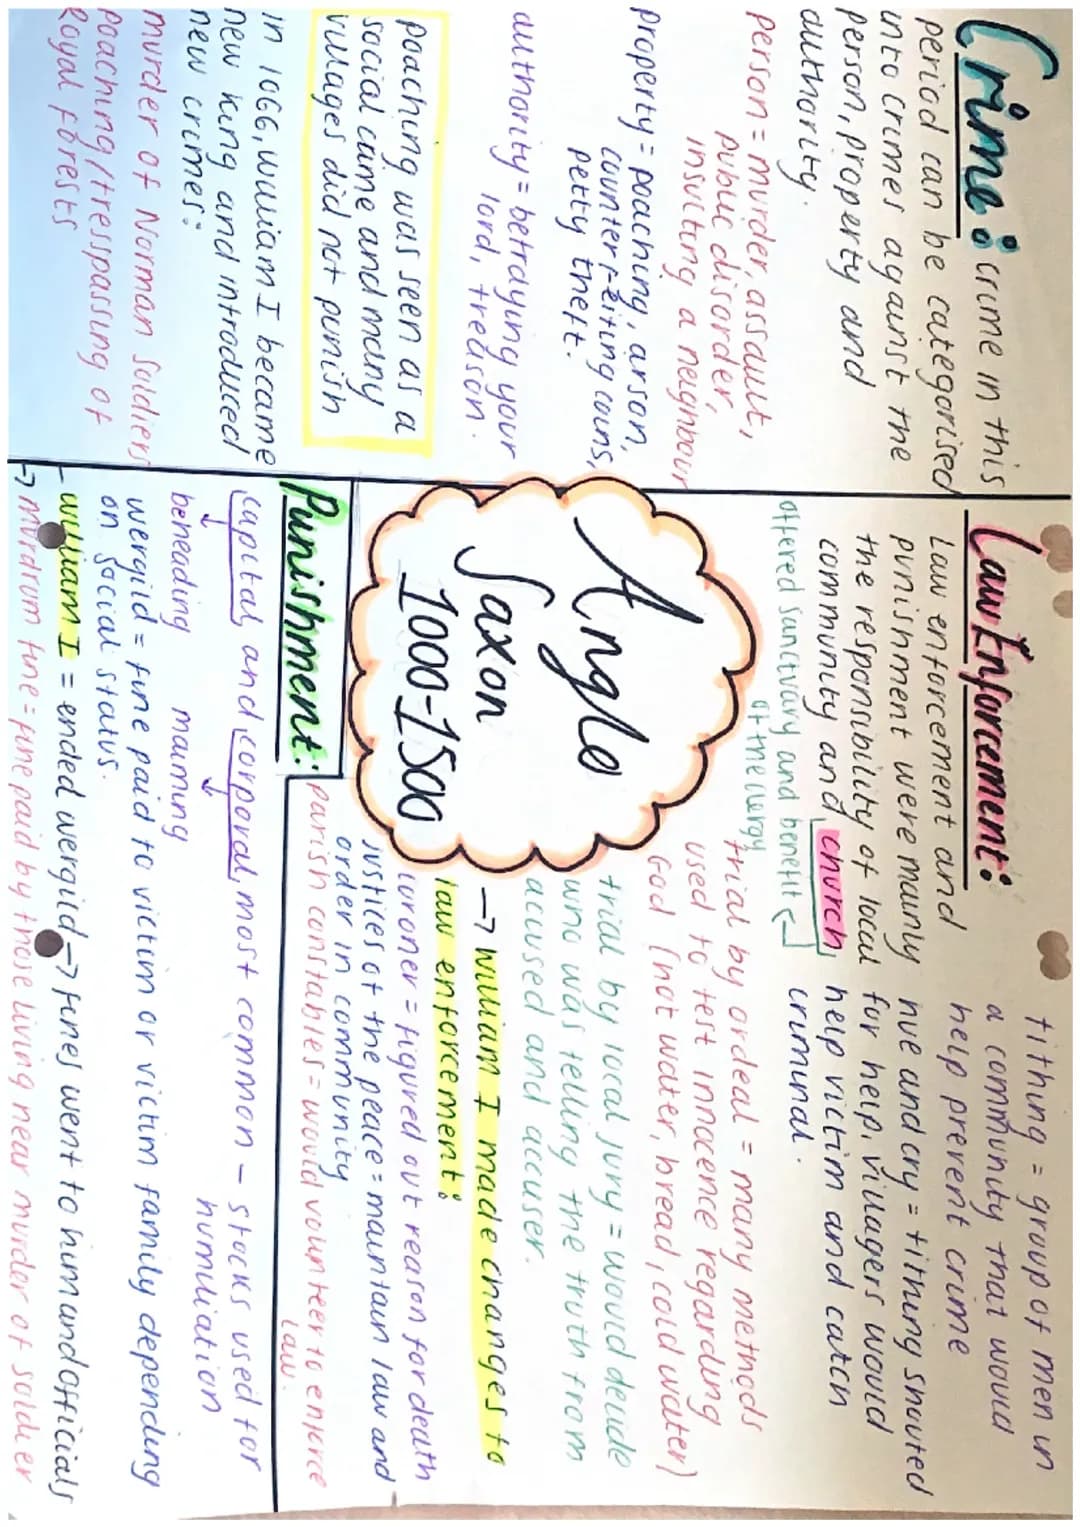 Crime: crime in this
period can be categorised
into crimes against the
person, property and
authority.
person = murder, assault,
public disorder,
insulting a neighbour
property = poaching, arson,
counterfeiting coins,
petty theft.
authority = betraying your
lord, treason.
poaching was seen as a
social crime and many
villages did not punish
in 1066, William I became
new king and introduced
new crimes:
murder of Norman Soldiers
poaching/tresspassing of
Royal forests
Law Enforcement:
Law enforcement and
punishment were mainly
the responsibility of local
community and church
offered sanctuary and benefit
of the clergy
tithing = group of men in
a community that would
help prevent crime
hue and cry = tithing shouted
for help, villagers would
help victim and catch
criminal.
trial by ordeal = many methods
used to test innocence regarding
God (hot water, bread, cold water)
trial by local jury = would decide
who was telling the truth from
accused and accuser.
→ William I made changes to
law enforcement:
coroner = figured out reason for death
justices of the peace = maintain law and
order in community
parish constables = would volunteer to enforce
law.
Anglo
Saxon
1000-1500
Punishment:
capital and corporal, most common - stocks used for
humiliation
beheading maiming
wergild = fine paid to victim or victim family depending
on social status.
- William I = ended wergild → fines went to him and officials
→ murdrum fine = fine paid by those living near murder of soldier